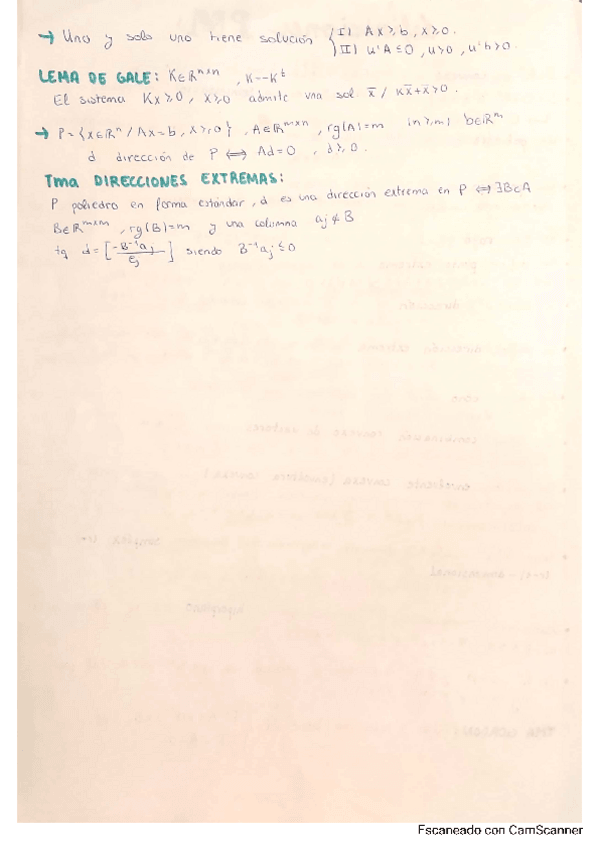 → Uno y solo uno tiene solución { I) Ax ≥ b, x ≥ 0.
II) u'A ≤ 0, u ≥ 0, u'b > 0.
LEMA DE GALE: K∈ℝⁿˣⁿ, K=-Kᵗ
El sistema Kx ≥ 0, x ≥ 0 admite una sol x̄ / Kx̄+x̄ > 0.
→ P = {x∈ℝⁿ / Ax=b, x ≥ 0}, A∈ℝᵐˣⁿ, rg(A)=m (n ≥ m) b∈ℝᵐ
d dirección de P ⟺ Ad=0, d ≥ 0.
Tma DIRECCIONES EXTREMAS:
P poliedro en forma estándar, d es una dirección extrema en P ⟺ ∃B∈A
B∈ℝᵐˣᵐ, rg(B)=m y una columna aj ∉ B
tq d = [-B⁻¹aj / ej] siendo B⁻¹aj ≤ 0
Escaneado con CamScanner